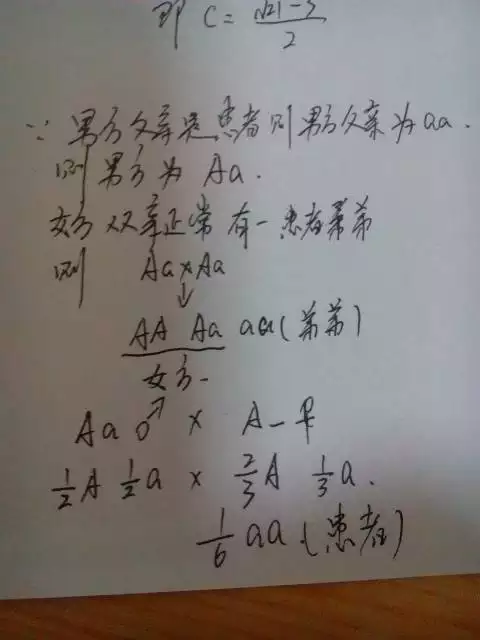 即 C = (√21-3)/2
∵ 男方父亲是患者则男方父亲为 aa.
则男方为 Aa.
女方双亲正常有一患者弟弟
则 Aa×Aa
↓
AA Aa aa(弟弟)
女方
Aa ♂ × A_ ♀
1/2 A 1/2 a × 2/3 A 1/3 a.
1/6 aa.(患者)